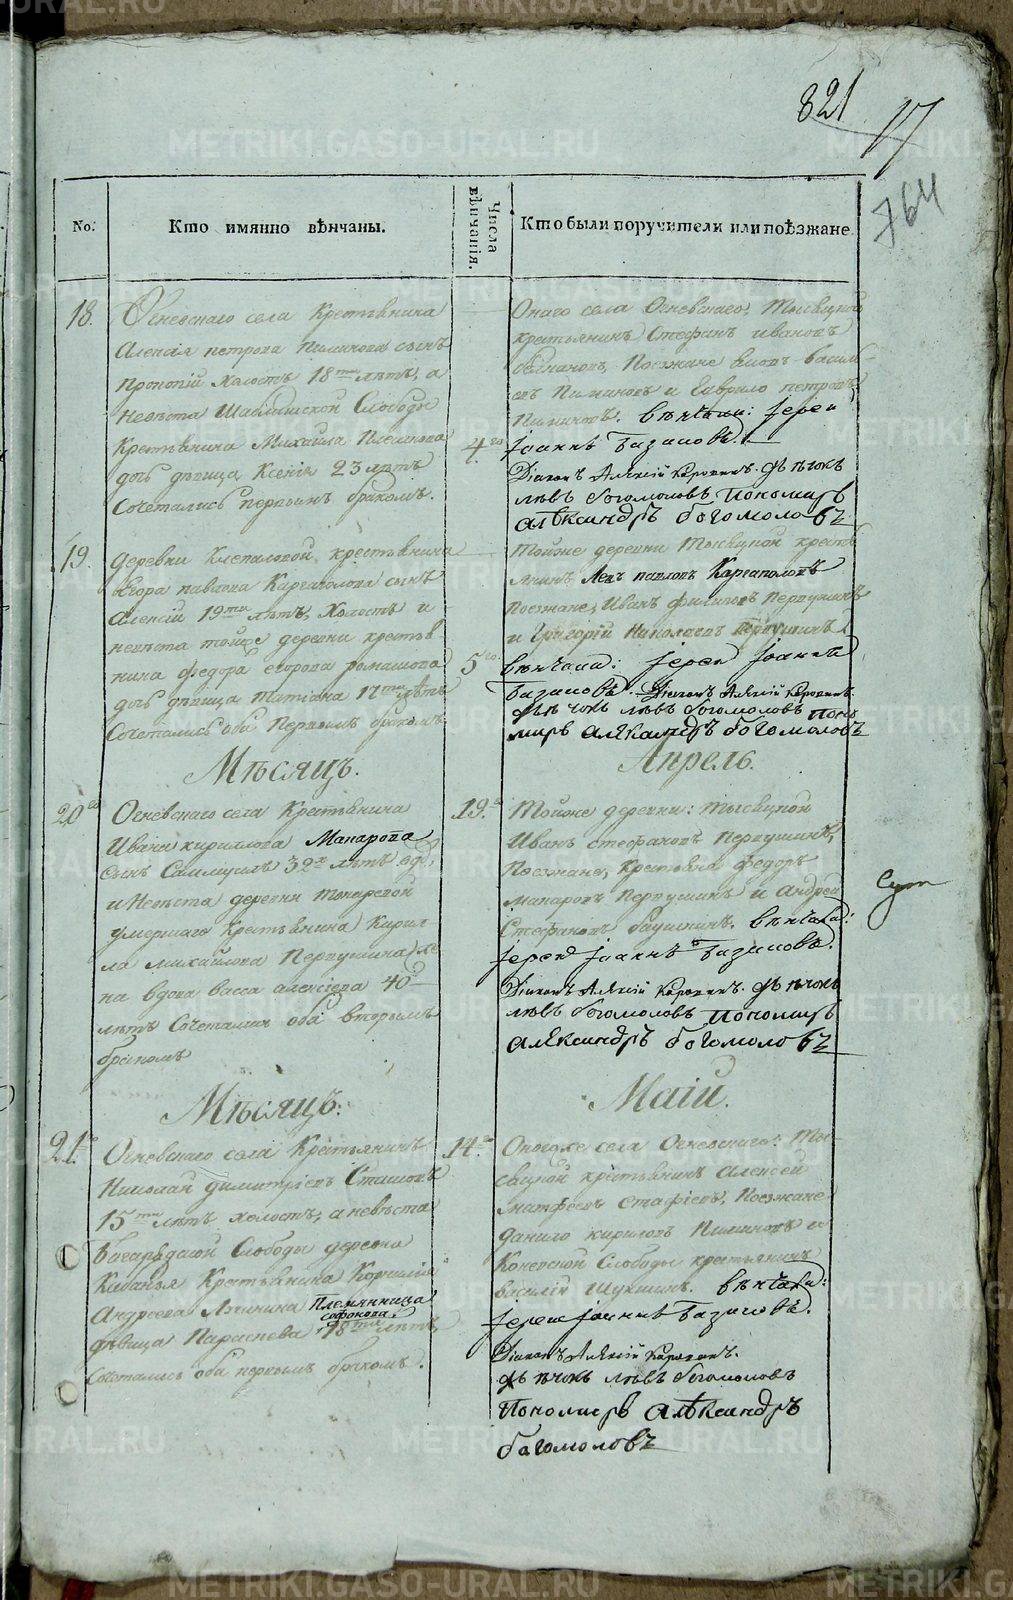 821
17
764
No.
Кто имянно вѣнчаны.
Числа вѣнчанія.
Кто были поручители или поѣзжане.
18.
Огневскаго села Крестьянина
Алексія петрова Пиминова сынъ
Прокопій холостъ 18ти лѣтъ, а
невѣста Слободы
Крестьянина Михайла
дочь дѣвица Ксенія 23 лѣтъ
Сочетались первымъ бракомъ.
4го
Онаго села Огневскаго, Тысяцкой
крестьянинъ Стефанъ ивановъ
Поезжане
Пиминовъ и Гаврило петровъ
Пиминовъ. Вѣнчали: Іерей
Іоаннъ Базиловъ.
Діаконъ Алѣксій Коровинъ. Дьячокъ
лѣвъ богомоловъ Пономарь
Алѣксандръ богомоловъ
19.
Деревни Клепаловой крестьянина
Егора павлова Каргаполова сынъ
Алексій 19ти лѣтъ, Холостъ и
невѣста тойже деревни крестья
нина федора егорова ромашова
дочь дѣвица татіана 17ти лѣтъ
Сочетались оба Первымъ бракомъ.
5го
Тойже деревни Тысяцкой кресть
янинъ Левъ павловъ Каргаполовъ
Поезжане, Иванъ филиповъ Первушинъ
и Григорій Николаевъ Первушинъ
Вѣнчали: Іерей Іоаннъ
Базиловъ. Діаконъ Алѣксій Коровинъ.
дьячокъ лѣвъ богомоловъ поно
марь алѣксандръ богомоловъ
Мѣсяцъ.
Апрель.
20го
Огневскаго села Крестьянина
Ивана кирилова Макарова
сынъ Самуилъ 32х лѣтъ вд.
и Невѣста деревни Токаревой
умершаго Крестьянина Кирил
ла михайлова Первушина же
на вдова васса алексіева 40
лѣтъ Сочетались оба вторымъ
бракомъ
19го
Тойже деревни: тысяцкой
Иванъ стефановъ Первушинъ,
Поезжане, Крестьяне федоръ
макаровъ Первушинъ и Андрей
Стефановъ Вѣнчали:
Іерей Іоаннъ Базиловъ.
Діаконъ Алѣксій Коровинъ. Дьячокъ
лѣвъ богомоловъ Пономарь
алѣксандръ богомоловъ
Мѣсяцъ:
Маій.
21го
Огневскаго села Крестьянинъ
Николай димитріевъ Сташовъ
15ти лѣтъ холостъ, а невѣста
Багарядской Слободы деревни
Кабанья Крестьянина Корнилія
Андреева Племянница
Софонова
дѣвица Параскева 18ти лѣтъ,
Сочетались оба первымъ бракомъ.
14го
Оногоже села Огневскаго: Ты-
сяцкой крестьянинъ Алексей
матфеевъ Поезжане
данило кириловъ Пиминовъ и
Коневской Слободы крестьянинъ
василій Щукинъ. Вѣнчали:
Іерей Іоаннъ Базиловъ.
Діаконъ Алѣксій Коровинъ.
дьячокъ лѣвъ богомоловъ
Пономарь Алѣксандръ
богомоловъ
METRIKI.GASO-URAL.RU